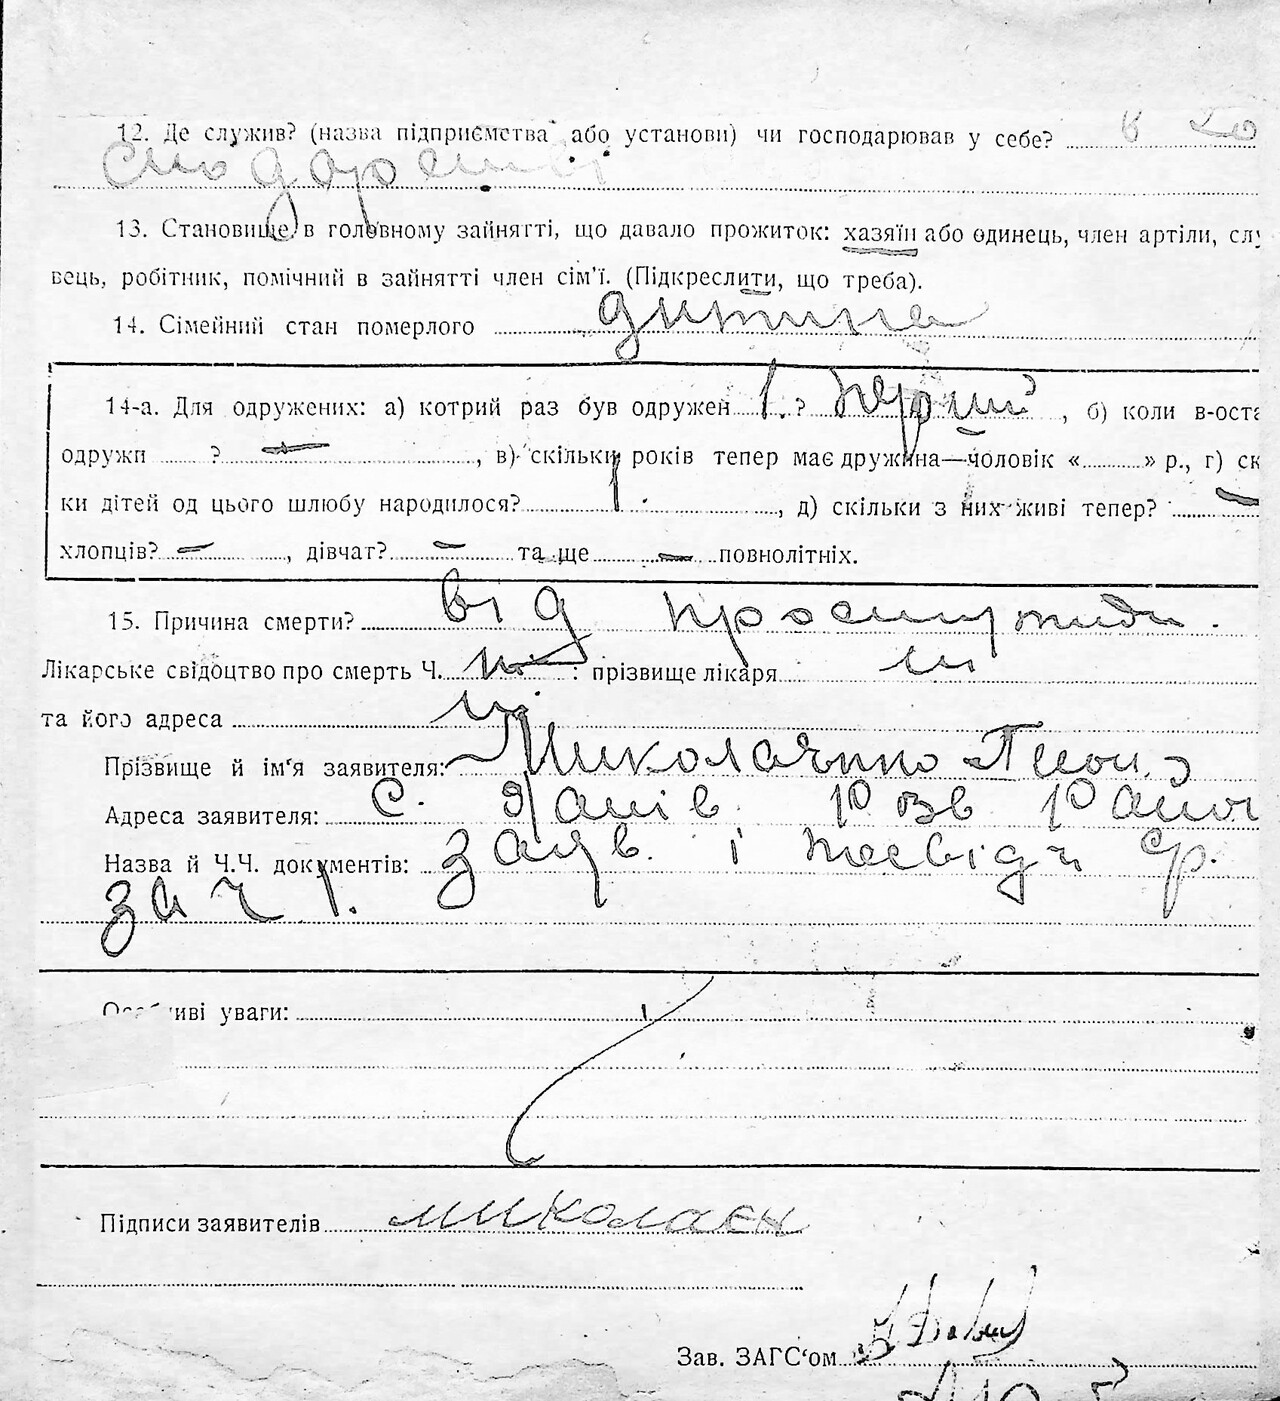 12. Де служив? (назва підприємства або установи) чи господарював у себе? в го
сподарстві
13. Становище в головному зайнятті, що давало прожиток: хазяїн або одинець, член артіли, слу
вець, робітник, помічний в зайнятті член сім'ї. (Підкреслити, що треба).
14. Сімейний стан померлого дитина
14-а. Для одружених: а) котрий раз був одружен 1. ? перший, б) коли в-оста
одружи ? —, в) скільки років тепер має дружина—чоловік «» р., г) ск
ки дітей од цього шлюбу народилося?, д) скільки з них живі тепер? —
хлопців? —, дівчат? — та ще — повнолітніх.
15. Причина смерти? від простуди.
Лікарське свідоцтво про смерть Ч. : прізвище лікаря
та його адреса
Прізвище й ім'я заявителя:
Адреса заявителя: с. Роз Район
Назва й Ч.Ч. документів: заяв. і посвідч ср.
за ч 1.
Особливі уваги:
Підписи заявителів миколаєн
Зав. ЗАГС'ом